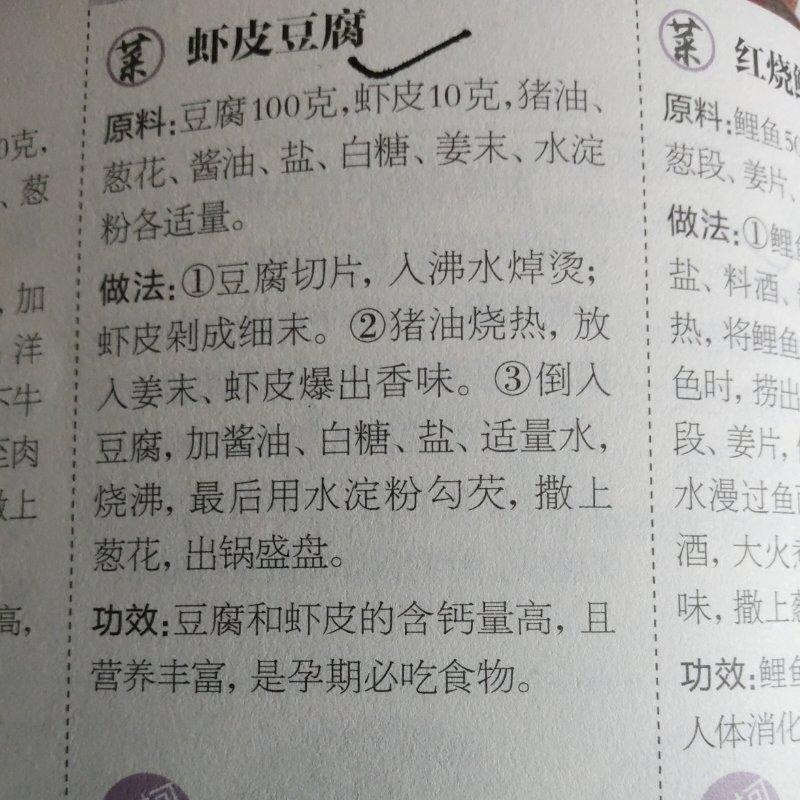 菜 虾皮豆腐
原料:豆腐100克,虾皮10克,猪油、
葱花、酱油、盐、白糖、姜末、水淀
粉各适量。
做法:①豆腐切片,入沸水焯烫;
虾皮剁成细末。②猪油烧热,放
入姜末、虾皮爆出香味。③倒入
豆腐,加酱油、白糖、盐、适量水,
烧沸,最后用水淀粉勾芡,撒上
葱花,出锅盛盘。
功效:豆腐和虾皮的含钙量高,且
营养丰富,是孕期必吃食物。
0克,
、葱
,加
洋
牛
肉
上
高,
菜 红烧
原料:鲤鱼50
葱段、姜片、
做法:①鲤
盐、料酒、
热,将鲤鱼
色时,捞出
段、姜片,
水漫过鱼
酒,大火
味,撒上
功效:鲤
人体消化